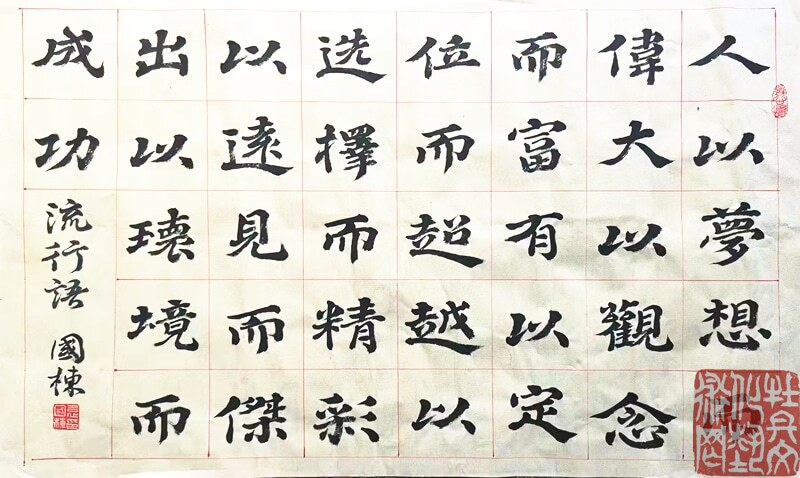 人以夢想而
偉大以觀念
而富有以定
位而超越以
选擇而精彩
以遠見而傑
出以環境而
成功
流行語 國棟